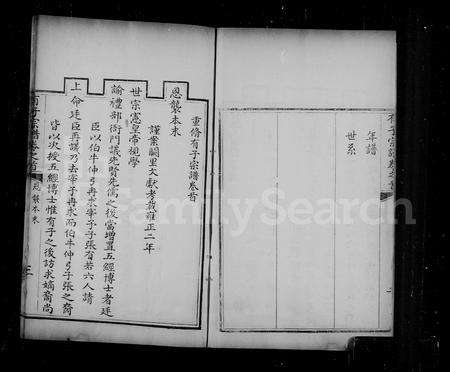 年譜
世系
重脩有子宗譜卷首
恩襲本末
謹案闕里文獻考載雍正二年
世宗憲皇帝視學
諭禮部衙門議先賢先儒之後當增置五經博士者廷
臣以伯牛仲弓冉求宰予子張有若六人請
上命廷臣再議乃去宰予冉求而伯牛仲弓子張之裔
皆以次授五經博士惟有子之後訪求嫡裔尚
有子宗譜卷之首
恩襲本末
FamilySearch